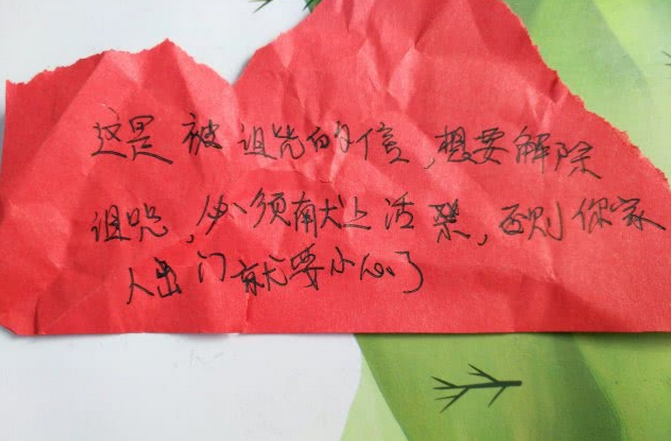 这是被诅咒的信,想要解除
诅咒,必须献上活祭,否则你家
人出门就要小心了